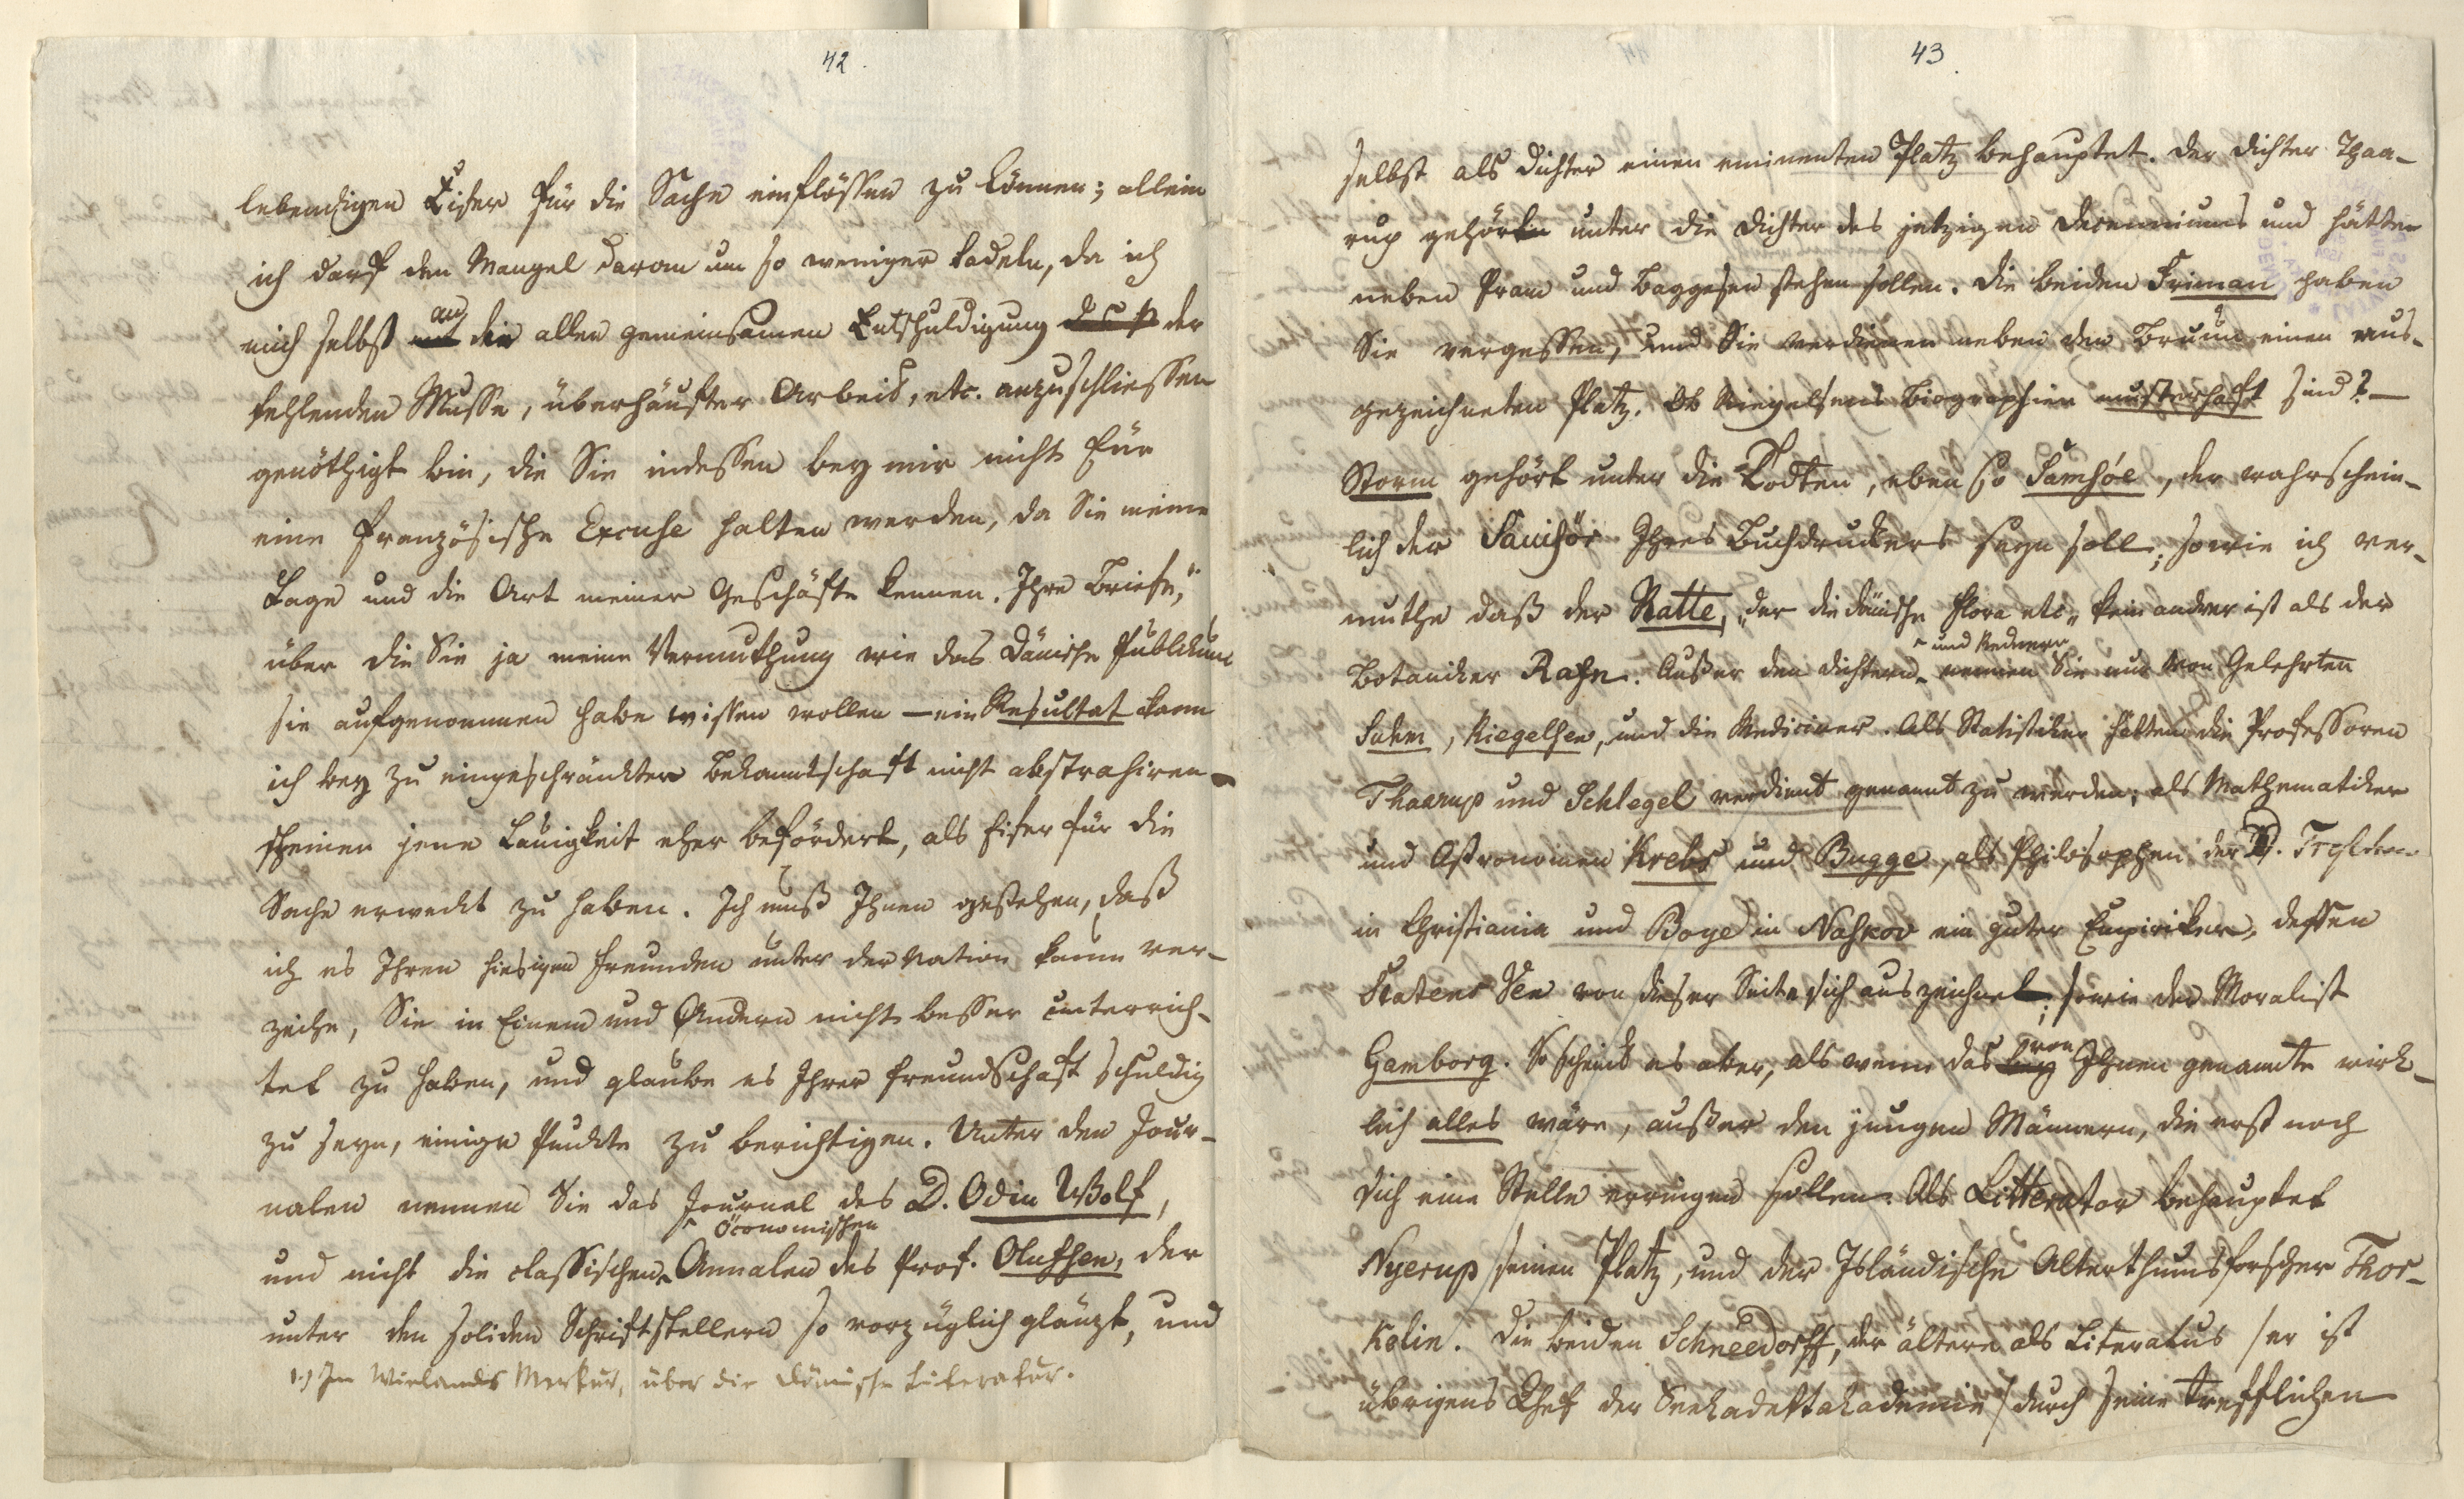 42.
lebendigen Eifer für die Sache einflössen zu können; allein
ich darf den Mangel daran um so weniger tadeln, da ich
mich selbst an die allen gemeinsamen Entschuldigung der
fehlenden Musse, überhäufter Arbeit, etc. anzuschliessen
genöthigt bin, die Sie indessen bey mir nicht für
eine französische Excuse halten werden, da Sie meine
Lage und die Art meiner Geschäfte kennen. Ihre Briefe,
über die Sie ja meine Vermuthung wie das Dänische Publikum
sie aufgenommen habe wissen wollen — ein Resultat kann
ich bey zu eingeschränkter Bekanntschaft nicht abstrahiren —
scheinen jene Lauigkeit eher befördert, als Eifer für die
Sache erweckt zu haben. Ich muß Ihnen gestehen, daß
ich es Ihren hiesigen Freunden unter der Nation kaum ver-
zeihe, Sie in Einem und Andern nicht besser unterrich-
tet zu haben, und glaube es Ihrer Freundschaft schuldig
zu seyn, einige Punkte zu berichtigen. Unter den Jour-
nalen nennen Sie das Journal des D. Odin Wolf,
öconomischen
und nicht die classischen Annalen des Prof. Olufsen, der
unter den soliden Schriftstellern so vorzüglich glänzt, und
1.) Im Wielands Merkur, über die dänische Literatur.
43.
selbst als Dichter einen eminenten Platz behauptet. Der Dichter Thaa-
rup gehörte unter die Dichter des jetzigen Decenniums und hätten
neben Pram und Baggesen stehen sollen. Die beiden Friman haben
Sie vergessen, und Sie verdienen neben den Bruun einen aus-
gezeichneten Platz. Ob Riegelsens Biographien musterhaft sind? —
Storm gehört unter die Todten, eben so Samsöe, der wahrschein-
lich der Sanisör Ihres Buchdruckers seyn soll; sowie ich ver-
muthe daß der Ratte, „der die dänische Flora etc„ kein andrer ist als der
und Rednern
Botaniker Rafn. Außer den Dichtern nennen Sie nur von Gelehrten
Suhm, Riegelsen, und die Mediciner. Als Statistiker hätten die Professoren
Thaarup und Schlegel verdient genannt zu werden; als Mathematiker
und Astronomen Krebs und Bugge, als Philosophen der D. Treschow
in Christiania und Boye in Nahkov ein guter Empiriker, dessen
Statens Ven von dieser Seite sich auszeichnet; sowie der Moralist
Gamborg. So scheint es aber, als wenn das von Ihnen genannte wirk-
lich alles wäre, außer den jungen Männern, die erst noch
sich eine Stelle erringen sollen. Als Litterator behauptet
Nyerup seinen Platz, und der Isländische Alterthumsforscher Thor-
kelin. Die beiden Schneedorff, der ältere als Literatus /er ist
übrigens Chef der Seekadettakademie/ durch seine trefflichen